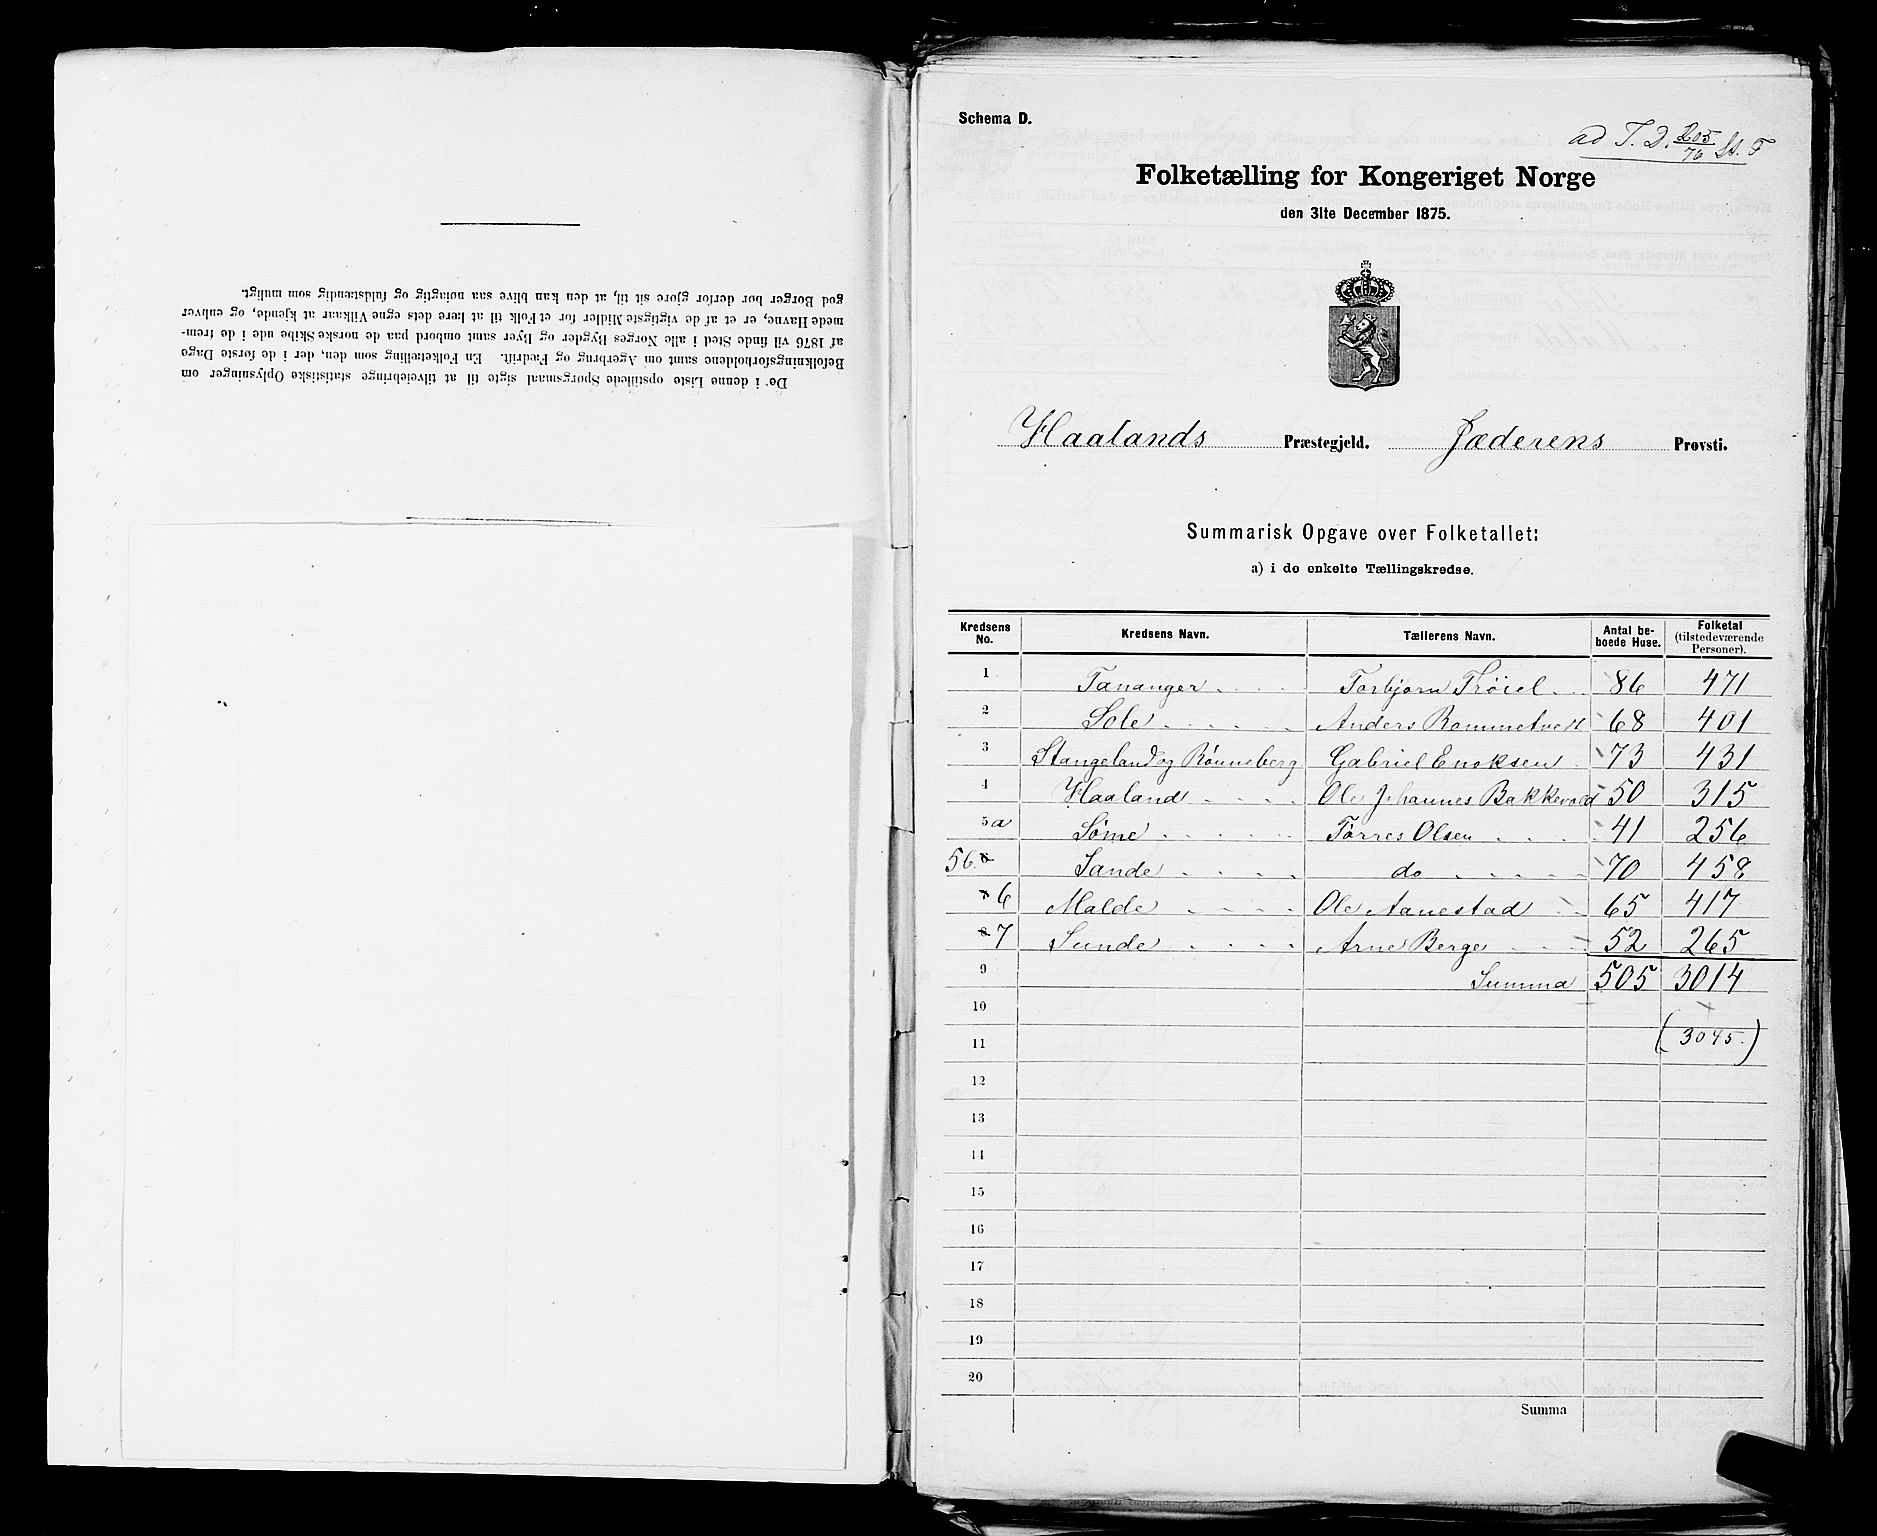 De i denne Liste opstillede Spørgsmaal sigte til at tilveiebringe statistiske Oplysninger om
Befolkningsforholdene samt om Agerbrug og Fædrift. En Folketælling som den, der i de første Dage
af 1876 vil finde Sted i alle Norges Bygder og Byer samt ombord paa de norske Skibe ude i de frem-
mede Havne, er et af de vigtigste Midler for et Folk til at lære dets egne Vilkaar at kjende, og enhver
god Borger bør derfor gjøre sit til, at den kan blive saa nøiagtig og fuldstændig som muligt.
Schema D.
ad T. D. 205/76
Folketælling for Kongeriget Norge
den 31te December 1875.
Haalands Præstegjeld. Jæderens Provsti.
Summarisk Opgave over Folketallet:
a) i de enkelte Tællingskredse.
Kredsens No. Kredsens Navn. Tællerens Navn. Antal be-boede Huse. Folketal (tilstedeværende Personer).
1 Tananger Torbjørn 86 471
2 Sole Anders Rommetvedt 68 401
3 Stangeland og Rönneberg Gabriel Enoksen 73 431
4 Haaland Ole Johannes Bakkevold 50 315
5a Sôme Tørres Olsen 41 256
5b. 6 Sande do 70 458
7 6 Malde Ole Aanestad 65 417
8 7 Sunde Arne Berge 52 265
9 Summa 505 3014
10
11 (3045.)
12
13
14
15
16
17
18
19
20
Summa